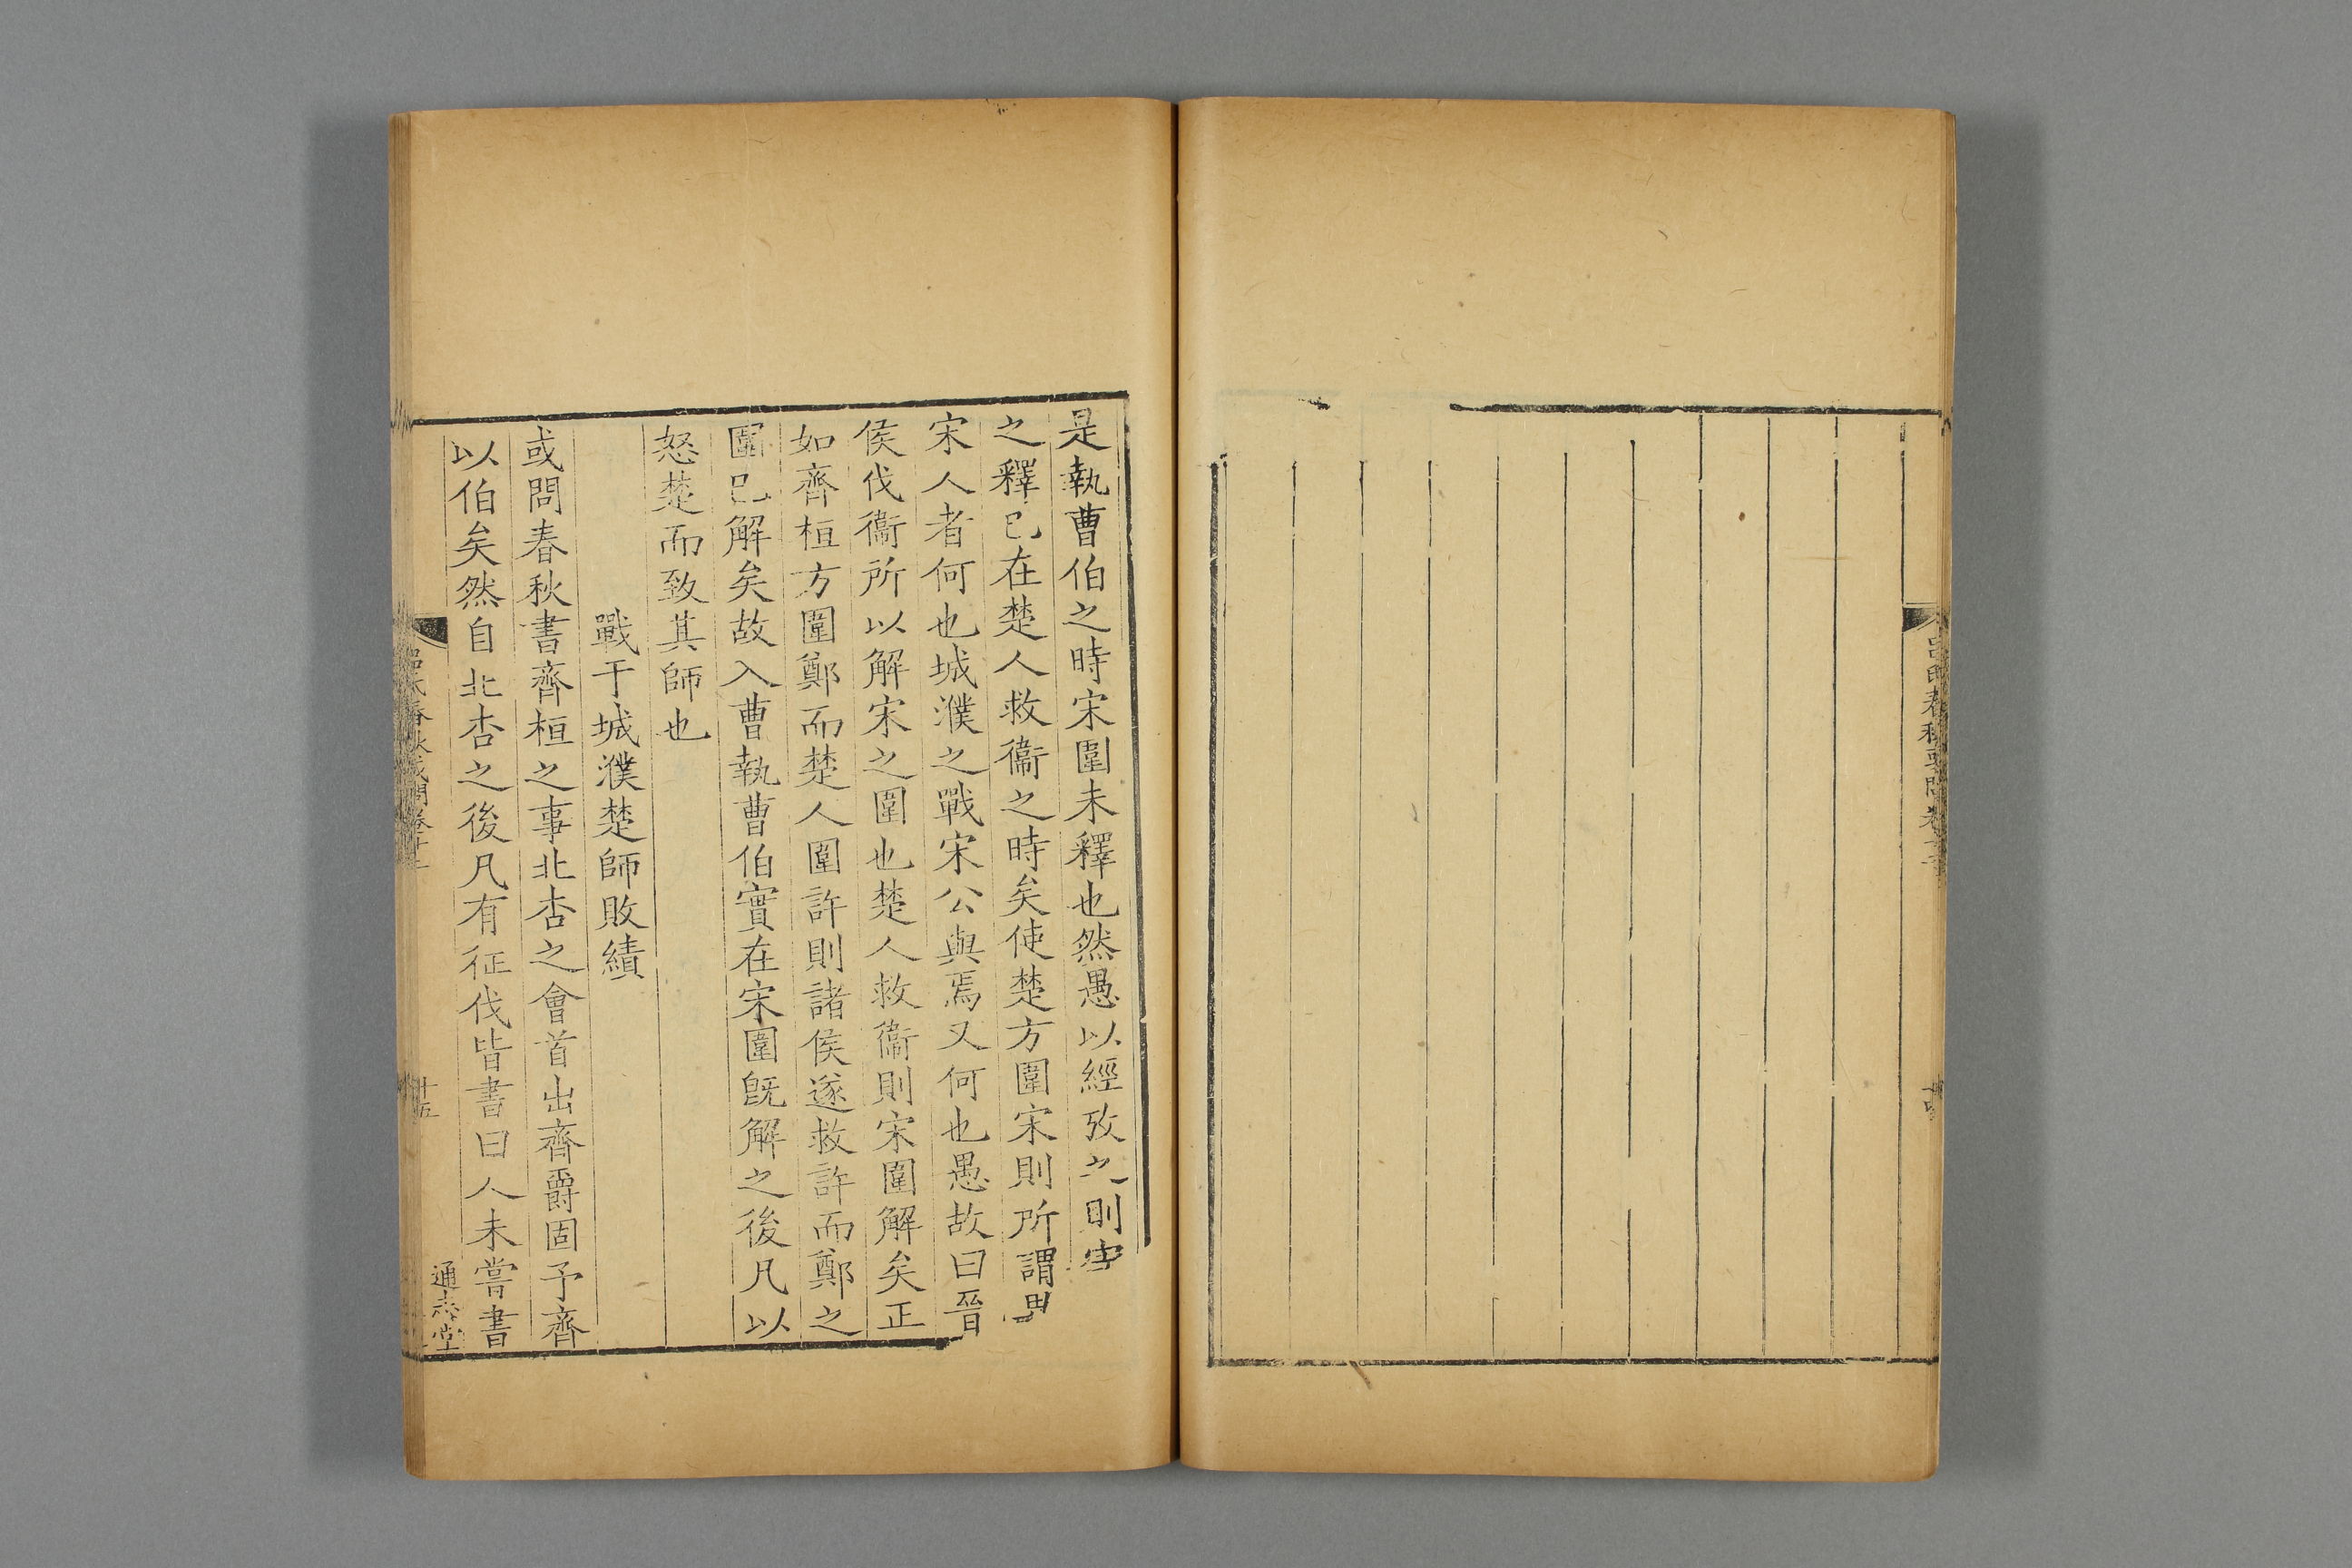 是執曹伯之時宋圍未釋也然愚以經攷之則宋
之釋已在楚人救衞之時矣使楚方圍宋則所謂
宋人者何也城濮之戰宋公與焉又何也愚故曰晉
侯伐衞所以解宋之圍也楚人救衞則宋圍解矣正
如齊桓方圍鄭而楚人圍許則諸侯遂救許而鄭之
圍已解矣故入曹執曹伯實在宋圍旣解之後凡以
怒楚而致其師也
戰于城濮楚師敗績
或問春秋書齊桓之事北杏之會首出齊爵固予齊
以伯矣然自北杏之後凡有征伐皆書曰人未嘗書
呂氏春秋或問卷十
十五
通志堂